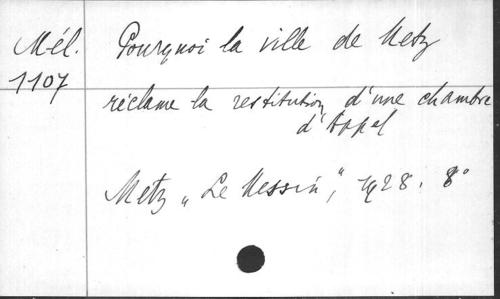 Mél.
1107
Pourquoi la ville de Metz
réclame la restitution d'une chambre
d'Appel
Metz „Le Messin", 1928. 8°